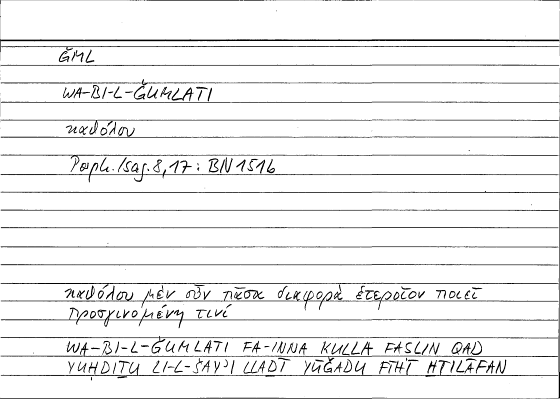 ǦML
WA-BI-L-ǦUMLATI
καθόλου
Porph. Isag. 8,17: BN 1516
καθόλου μὲν οὖν πᾶσα διαφορὰ ἑτεροῖον ποιεῖ
προσγινομένη τινί
WA-BI-L-ǦUMLATI FA-INNA KULLA FASLIN QAD
YUḤDIṮU LI-L-ŠAYʾI LLAḎĪ YŪǦADU FĪHĪ ḪTILĀFAN